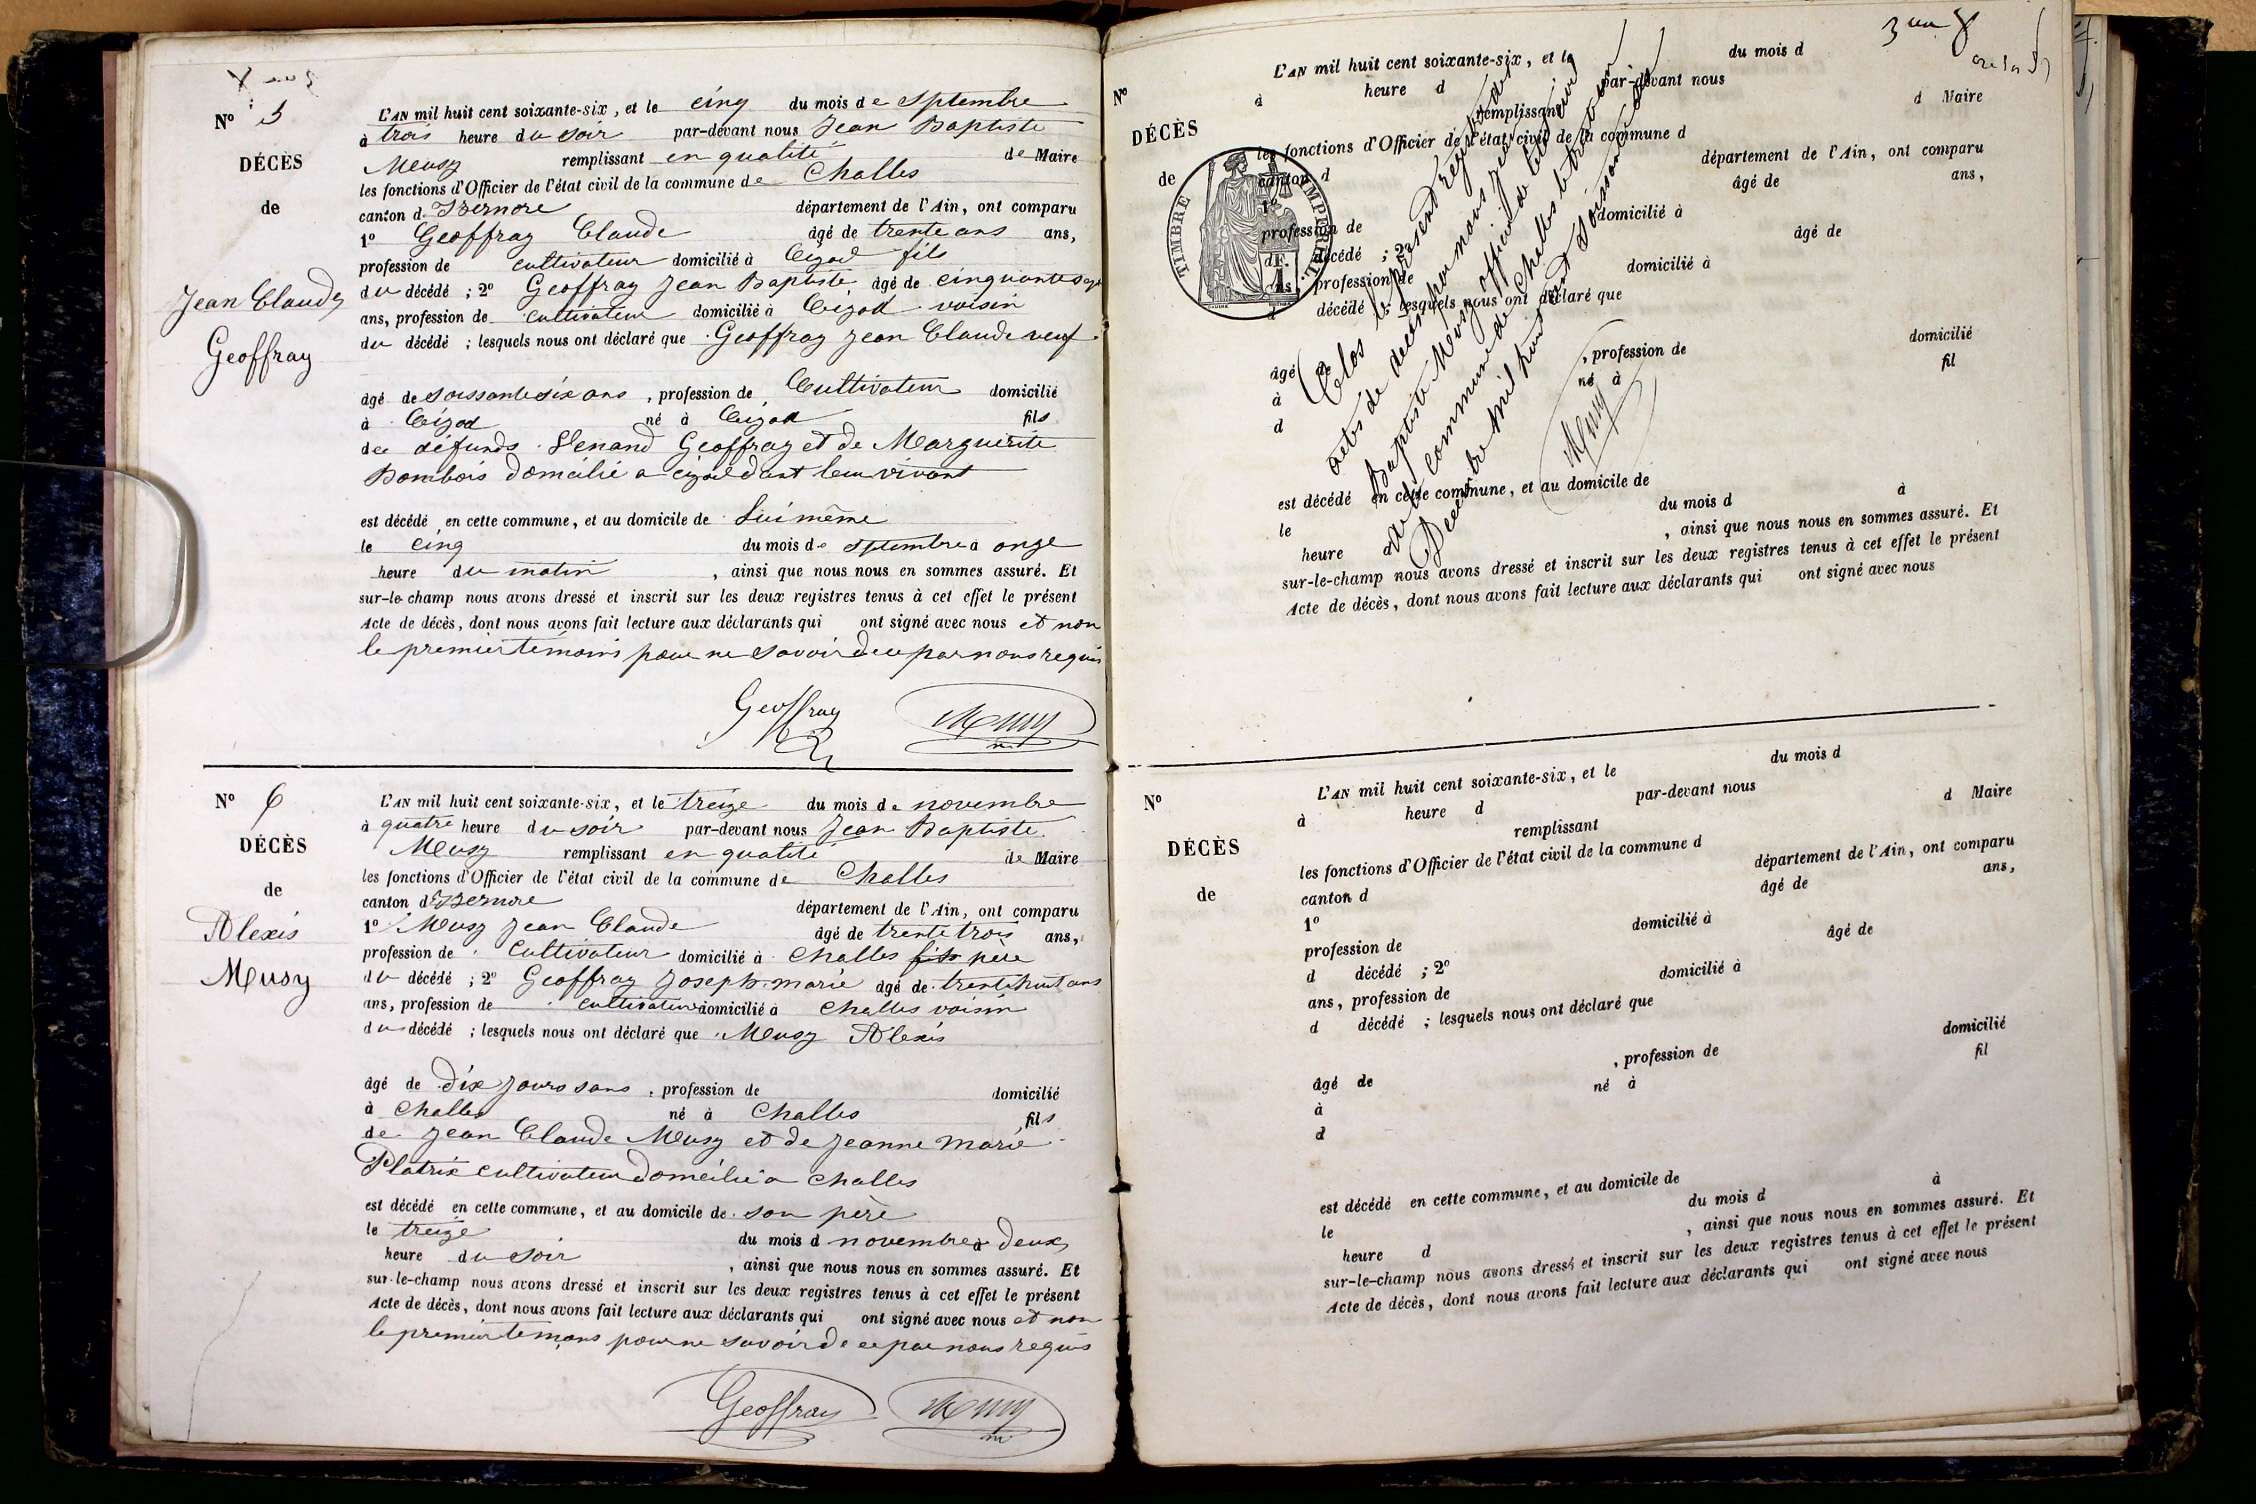 N° 5
DÉCÈS
de
Jean Claude
Geoffray
L'AN mil huit cent soixante-six, et le cinq du mois de Septembre
à trois heure du soir par-devant nous Jean Baptiste
Meusy remplissant en qualité de Maire
les fonctions d'Officier de l'état civil de la commune de Challes
canton d'Izernore département de l'Ain, ont comparu
1° Geoffray Claude âgé de trente ans ans,
profession de cultivateur domicilié à Cizod fils
du décédé ; 2° Geoffray Jean Baptiste âgé de cinquante sept
ans, profession de cultivateur domicilié à Cizod voisin
du décédé ; lesquels nous ont déclaré que Geoffray Jean Claude veuf
âgé de soissante six ans, profession de Cultivateur domicilié
à Cizod né à Cizod fils
de défunds Geoffray et de Marguerite
Bombois domicilié a cizod dant leur vivant
est décédé en cette commune, et au domicile de lui même
le cinq du mois de septembre à onze
heure du matin, ainsi que nous nous en sommes assuré. Et
sur-le-champ nous avons dressé et inscrit sur les deux registres tenus à cet effet le présent
Acte de décès, dont nous avons fait lecture aux déclarants qui ont signé avec nous et non
le premier temoins pour ne savoir de ce par nous requis
Geoffray Meusy
N° 6
DÉCÈS
de
Alexis
Meusy
L'AN mil huit cent soixante-six, et le treize du mois de novembre
à quatre heure du soir par-devant nous Jean Baptiste
Meusy remplissant en qualité de Maire
les fonctions d'Officier de l'état civil de la commune de Challes
canton d'Izernore département de l'Ain, ont comparu
1° Meusy Jean Claude âgé de trente trois ans,
profession de Cultivateur domicilié à Challes fils père
du décédé ; 2° Geoffray Joseph marie âgé de trente huit ans
ans, profession de cultivateur domicilié à Challes voisin
du décédé ; lesquels nous ont déclaré que Meusy Alexis
âgé de dix jours sans, profession de domicilié
à Challes né à Challes fils
de Jean Claude Meusy et de Jeanne Marie
Platrix cultivateur domicilié a Challes
est décédé en cette commune, et au domicile de son père
le treize du mois d novembre à deux
heure du soir, ainsi que nous nous en sommes assuré. Et
sur-le-champ nous avons dressé et inscrit sur les deux registres tenus à cet effet le présent
Acte de décès, dont nous avons fait lecture aux déclarants qui ont signé avec nous et non
le premier temoins pour ne savoir de ce par nous requis
Geoffray Meusy
N°
DÉCÈS
de
TIMBRE IMPÉRIAL
L'AN mil huit cent soixante-six, et le du mois d
à heure d par-devant nous
remplissant d Maire
les fonctions d'Officier de l'état civil de la commune d
canton d département de l'Ain, ont comparu
1° âgé de ans,
profession de domicilié à
d décédé ; 2° âgé de
profession de domicilié à
d décédé ; lesquels nous ont déclaré que
âgé de, profession de domicilié
à né à fil
d
est décédé en cette commune, et au domicile de
le du mois d à
heure d, ainsi que nous nous en sommes assuré. Et
sur-le-champ nous avons dressé et inscrit sur les deux registres tenus à cet effet le présent
Acte de décès, dont nous avons fait lecture aux déclarants qui ont signé avec nous
Clos le présent régistre des
actes de décès par nous Jean
Baptiste Meusy officier de l'état civil
de la commune de Challes le trente un
Décembre mil huit cent soissante six
Meusy
N°
DÉCÈS
de
L'AN mil huit cent soixante-six, et le du mois d
à heure d par-devant nous
remplissant d Maire
les fonctions d'Officier de l'état civil de la commune d
canton d département de l'Ain, ont comparu
1° âgé de ans,
profession de domicilié à
d décédé ; 2° âgé de
ans, profession de domicilié à
d décédé ; lesquels nous ont déclaré que
âgé de, profession de domicilié
à né à fil
d
est décédé en cette commune, et au domicile de
le du mois d à
heure d, ainsi que nous nous en sommes assuré. Et
sur-le-champ nous avons dressé et inscrit sur les deux registres tenus à cet effet le présent
Acte de décès, dont nous avons fait lecture aux déclarants qui ont signé avec nous